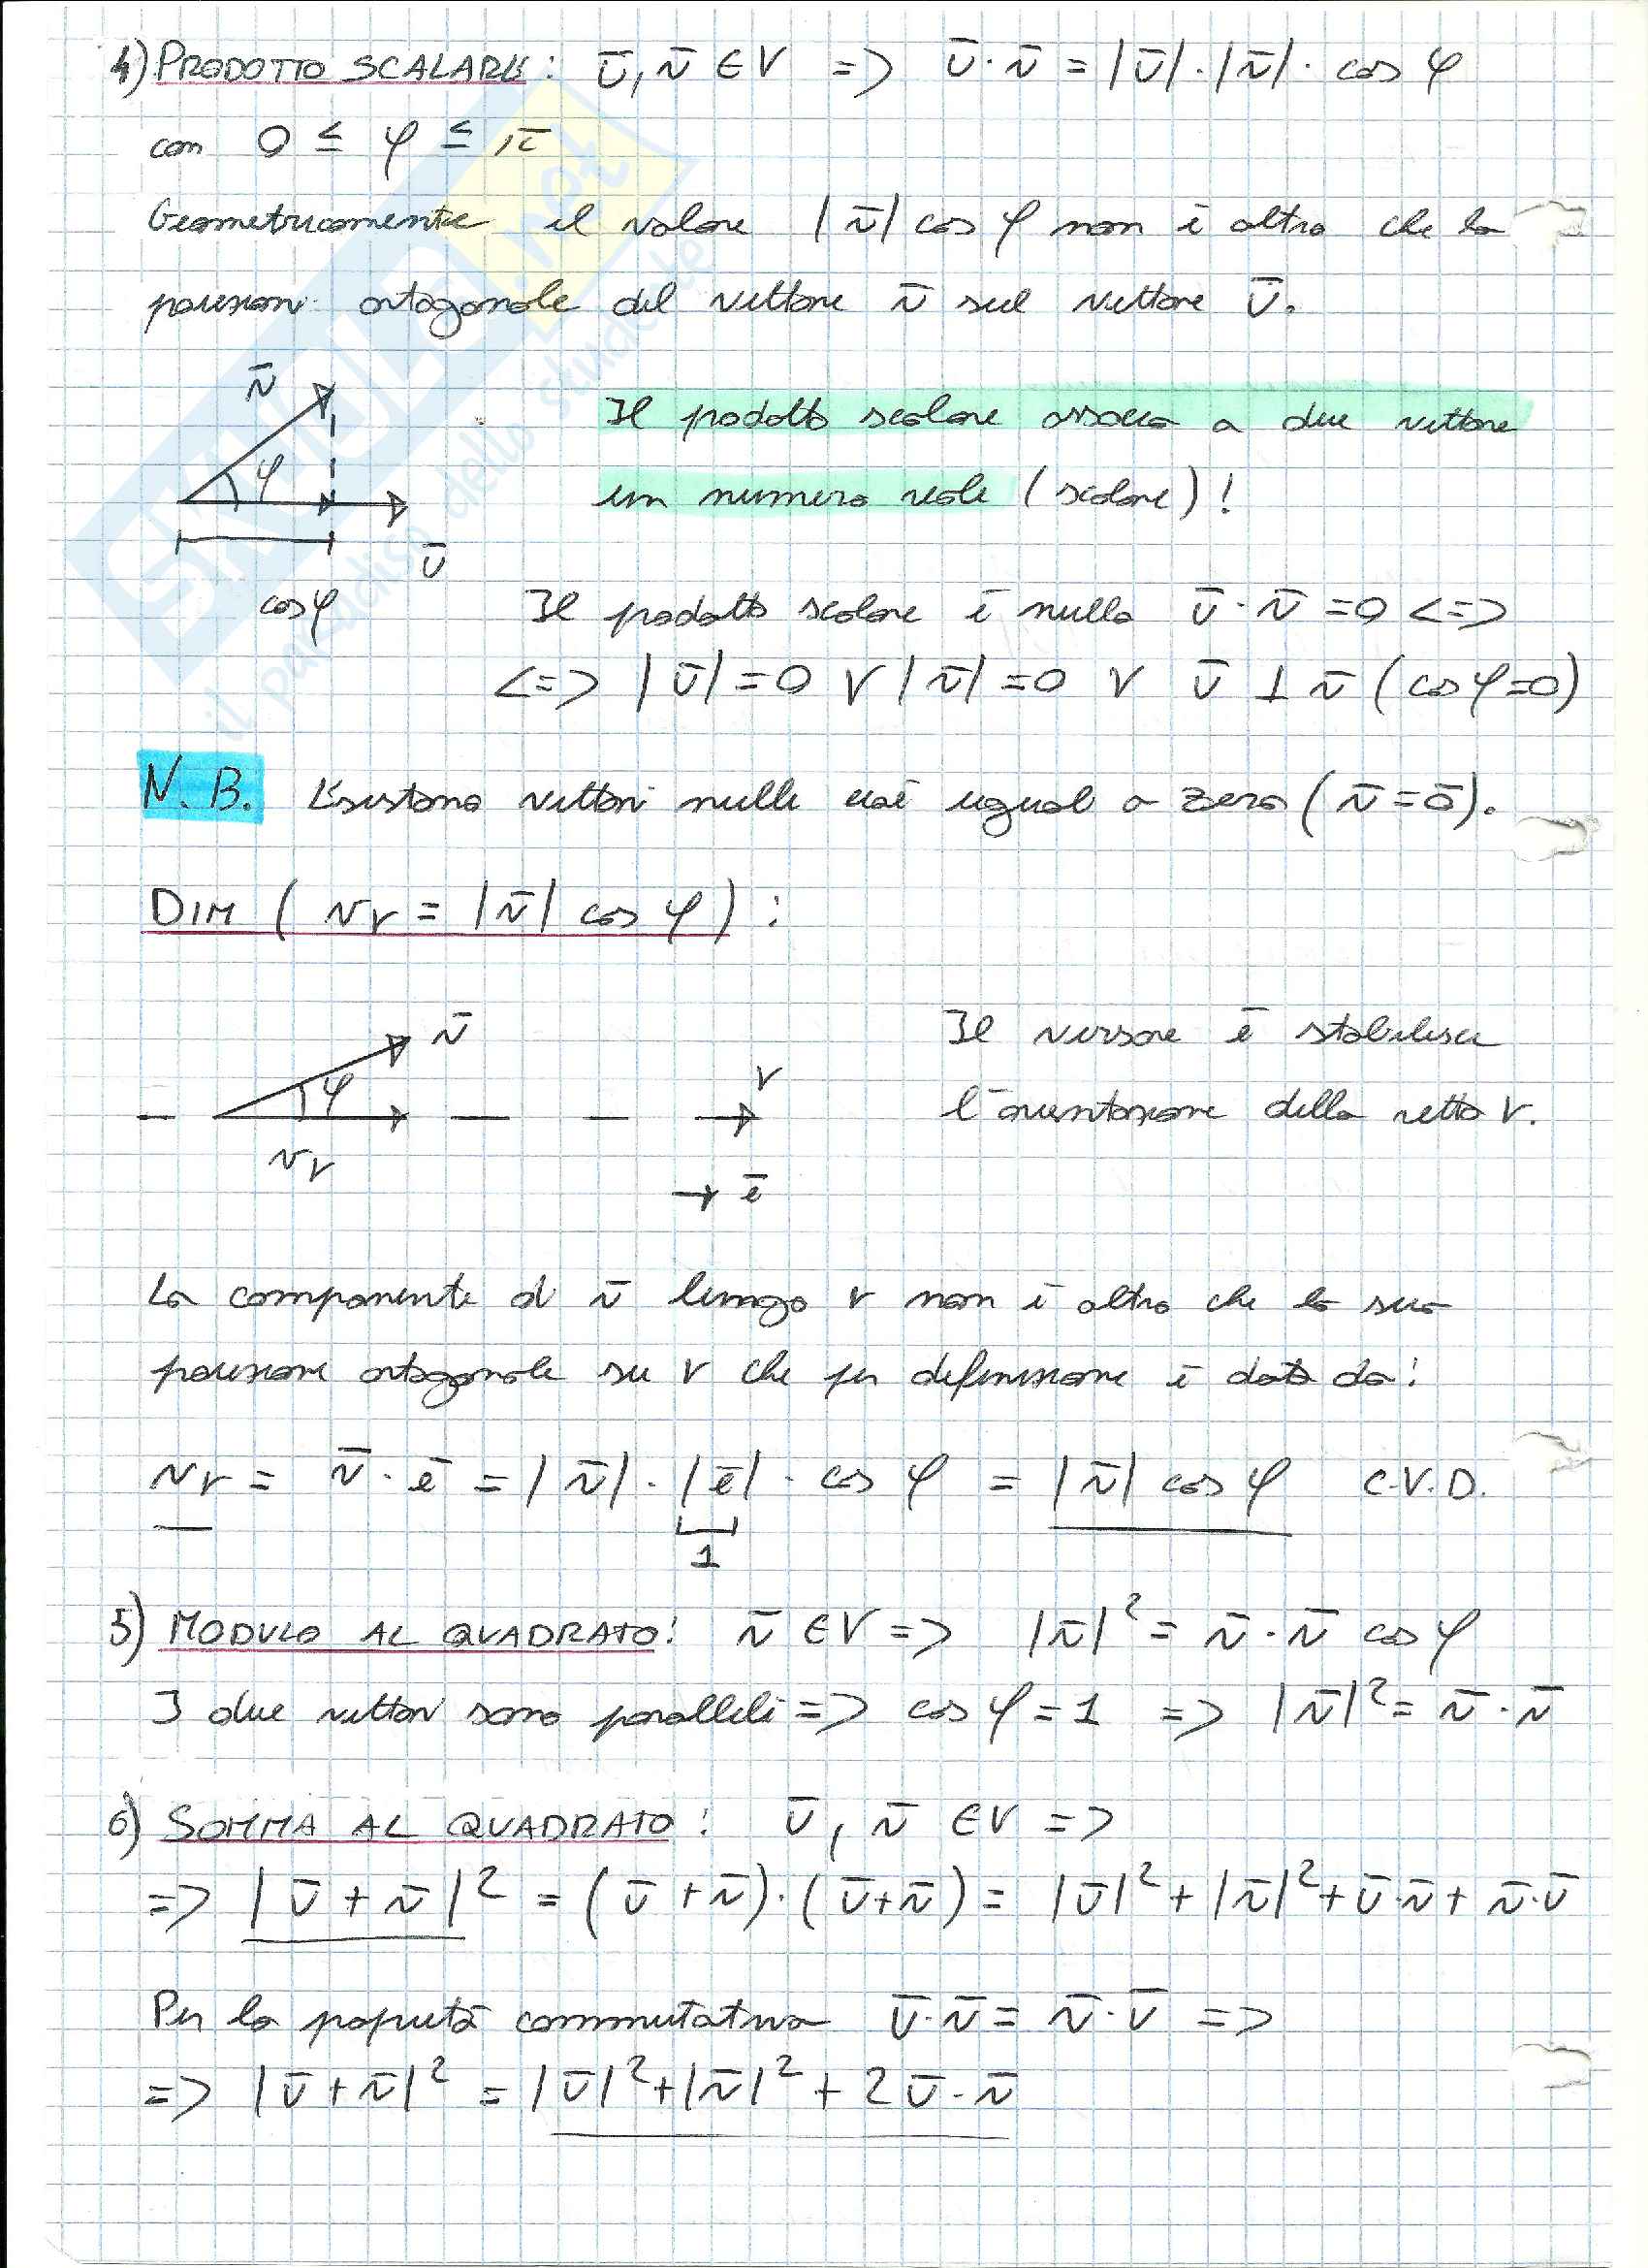 4) PRODOTTO SCALARE: ū, v̄ ∈ V => ū · v̄ = |ū| · |v̄| · cos φ
con 0 ≤ φ ≤ π
Geometricamente il valore |v̄| cos φ non è altro che la
proiezione ortogonale del vettore v̄ sul vettore ū.
v̄
φ
ū
cosφ
Il prodotto scalare associa a due vettore
un numero reale (scalare)!
Il prodotto scalare è nullo ū · v̄ = 0 <=>
<=> |ū| = 0 V |v̄| = 0 V ū ⊥ v̄ (cos φ=0)
N.B. Esistono vettori nulli cioè uguali a zero (v̄ = ō).
DIM ( vr = |v̄| cos φ ) :
v̄
φ
r
vr
ē
Il versore ē stabilisce
l'orientazione della retta r.
La componente di v̄ lungo r non è altro che la sua
proiezione ortogonale su r che per definizione è data da:
vr = v̄ · ē = |v̄| · |ē| · cos φ = |v̄| cos φ C.V.D.
1
5) MODULO AL QUADRATO: v̄ ∈ V => |v̄|² = v̄ · v̄ cos φ
I due vettori sono paralleli => cos φ = 1 => |v̄|² = v̄ · v̄
6) SOMMA AL QUADRATO: ū, v̄ ∈ V =>
=> |ū + v̄|² = (ū + v̄) · (ū + v̄) = |ū|² + |v̄|² + ū·v̄ + v̄·ū
Per la proprietà commutativa ū·v̄ = v̄·ū =>
=> |ū + v̄|² = |ū|² + |v̄|² + 2 ū · v̄